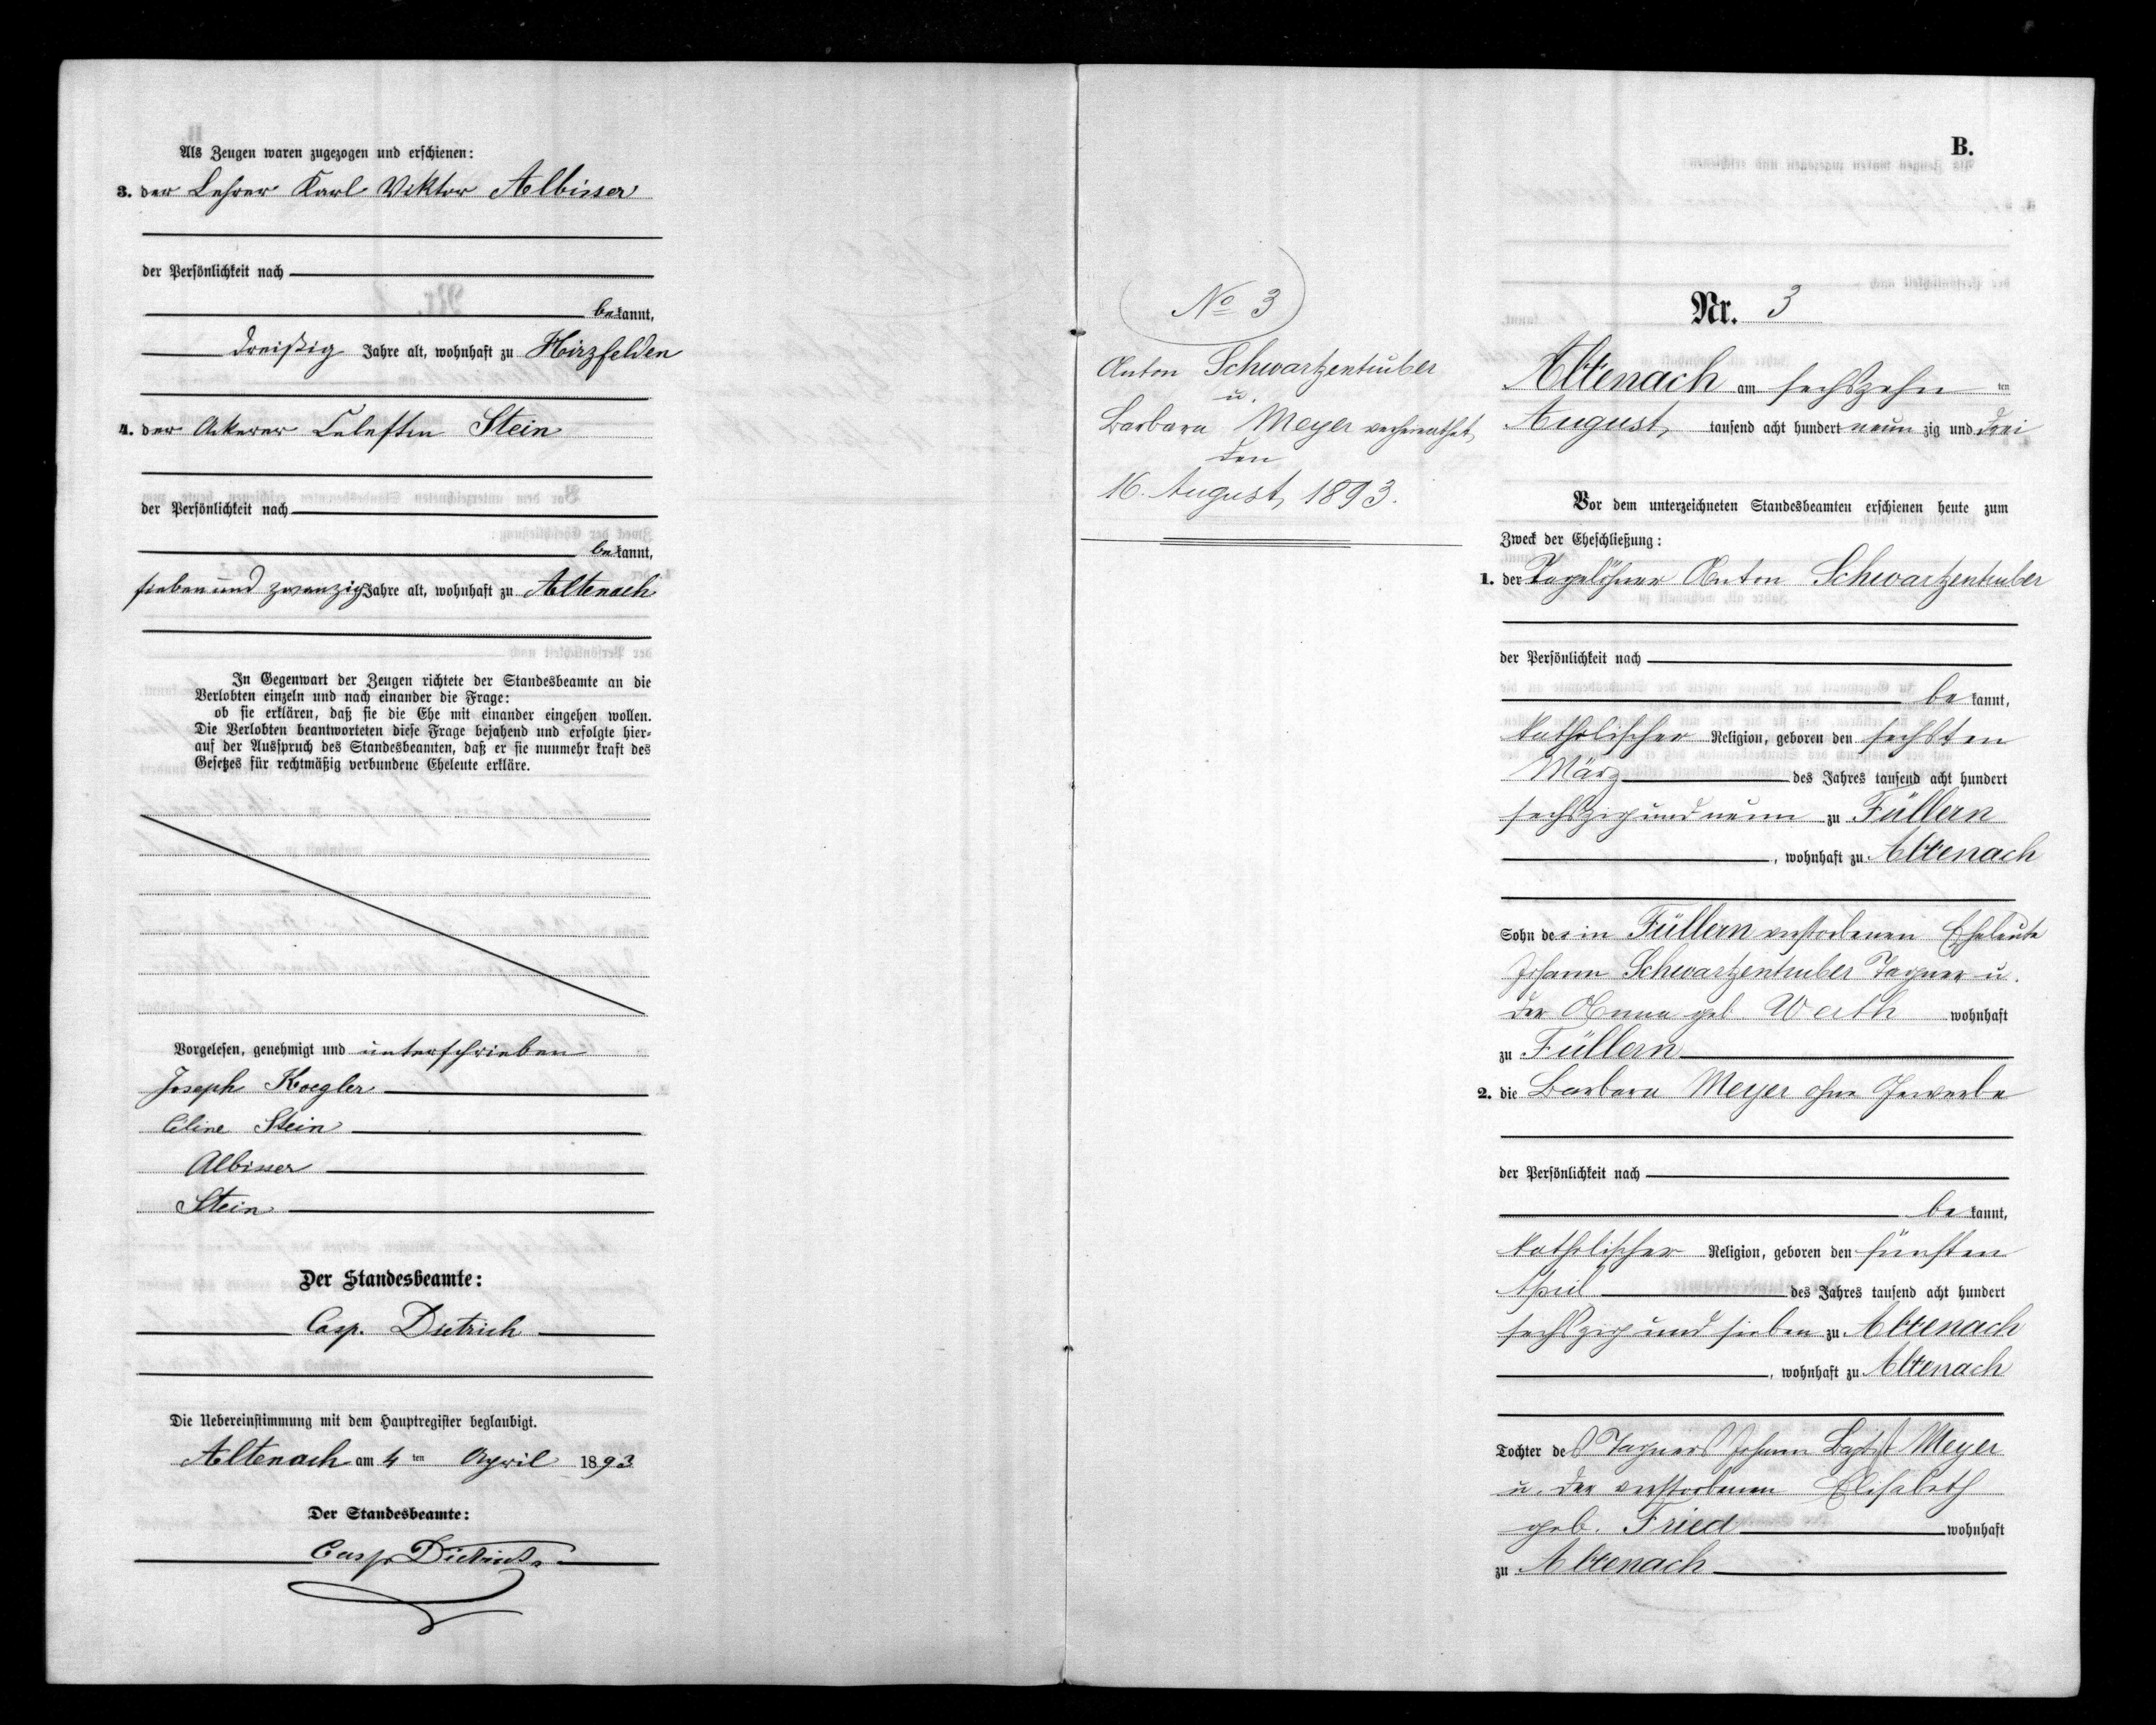 Als Zeugen waren zugezogen und erschienen:
3. der Lehrer Karl Viktor Albisser
der Persönlichkeit nach
bekannt,
dreißig Jahre alt, wohnhaft zu Hirzfelden
4. der Ackerer Celestin Stein
der Persönlichkeit nach
bekannt,
sieben und zwanzig Jahre alt, wohnhaft zu Altenach
In Gegenwart der Zeugen richtete der Standesbeamte an die
Verlobten einzeln und nach einander die Frage:
ob sie erklären, daß sie die Ehe mit einander eingehen wollen.
Die Verlobten beantworteten diese Frage bejahend und erfolgte hier-
auf der Ausspruch des Standesbeamten, daß er sie nunmehr kraft des
Gesetzes für rechtmäßig verbundene Eheleute erkläre.
Vorgelesen, genehmigt und unterschrieben
Joseph Koegler
Céline Stein
Albisser
Stein
Der Standesbeamte:
Casp. Dietrich
Die Uebereinstimmung mit dem Hauptregister beglaubigt.
Altenach am 4 ten April 1893
Der Standesbeamte:
Casp Dietrich
No 3
Anton Schwartzentruber
u.
Barbara Meyer verheirathet
den
16. August, 1893.
B.
Nr. 3
Altenach am sechszehn ten
August, tausend acht hundert neun zig und drei
Vor dem unterzeichneten Standesbeamten erschienen heute zum
Zweck der Eheschließung:
1. der Tagelöhner Anton Schwartzentruber
der Persönlichkeit nach
be kannt,
katholischer Religion, geboren den sechsten
März des Jahres tausend acht hundert
sechszig und neun zu Füllern
, wohnhaft zu Altenach
Sohn der in Füllern verstorbenen Eheleute
Johann Schwartzentruber Tagner u.
der Anna geb. Werth wohnhaft
zu Füllern
2. die Barbara Meyer ohne Gewerbe
der Persönlichkeit nach
be kannt,
katholischer Religion, geboren den fünften
April des Jahres tausend acht hundert
sechszig und sieben zu Altenach
, wohnhaft zu Altenach
Tochter des Tagners Johann Baptist Meyer
u. der verstorbenen Elisabeth
geb. Fried wohnhaft
zu Altenach